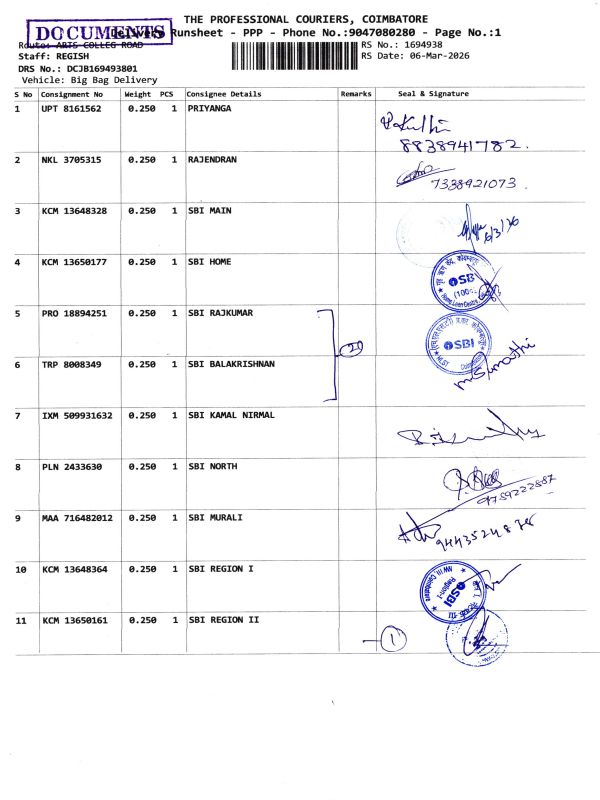 THE PROFESSIONAL COURIERS, COIMBATORE
DOCUMENTS
Delivery Runsheet - PPP - Phone No.:9047080280 - Page No.:1
Route: ARTS COLLEG ROAD
RS No.: 1694938
Staff: REGISH
RS Date: 06-Mar-2026
DRS No.: DCJB169493801
Vehicle: Big Bag Delivery
S No Consignment No Weight PCS Consignee Details Remarks Seal & Signature
1 UPT 8161562 0.250 1 PRIYANGA
8838941782.
2 NKL 3705315 0.250 1 RAJENDRAN
7338921073.
3 KCM 13648328 0.250 1 SBI MAIN
6/3/26
4 KCM 13650177 0.250 1 SBI HOME
SBI
5 PRO 18894251 0.250 1 SBI RAJKUMAR
SBI
6 TRP 8008349 0.250 1 SBI BALAKRISHNAN
7 IXM 509931632 0.250 1 SBI KAMAL NIRMAL
8 PLN 2433630 0.250 1 SBI NORTH
9789222887
9 MAA 716482012 0.250 1 SBI MURALI
10 KCM 13648364 0.250 1 SBI REGION I
SBI
Region-I
11 KCM 13650161 0.250 1 SBI REGION II
1